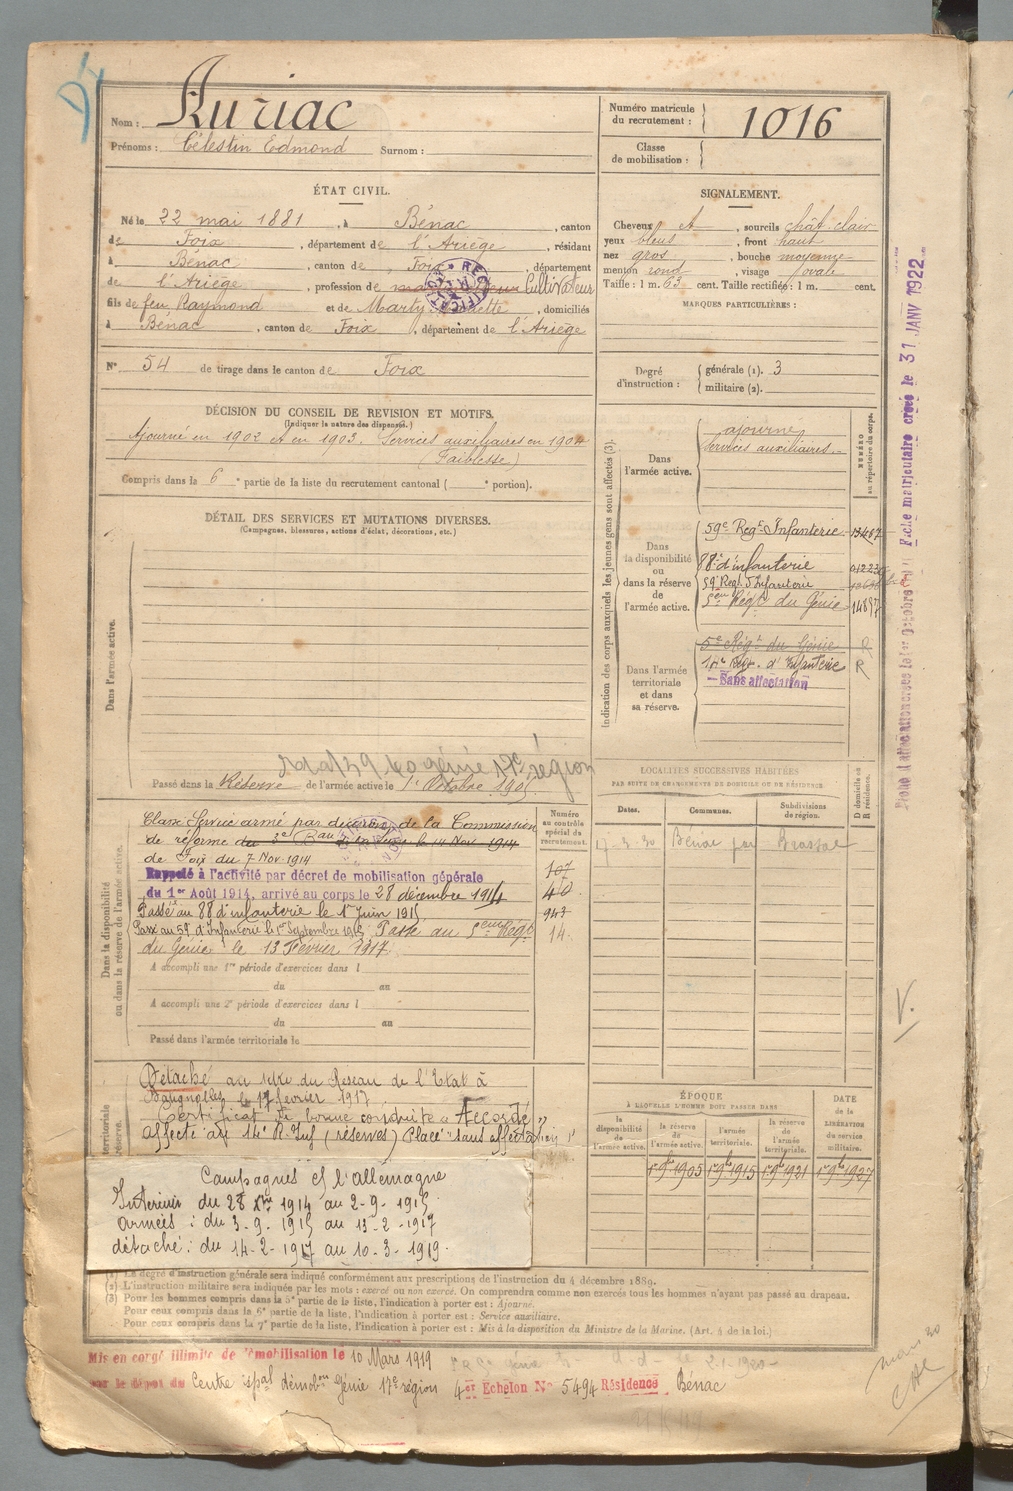 Nom : Auriac
Prénoms : Célestin Edmond Surnom :
Numéro matricule du recrutement : 1016
Classe de mobilisation :
ÉTAT CIVIL.
Né le 22 mai 1881, à Bénac, canton
de Foix, département de l'Ariège, résidant
à Bénac, canton de Foix, département
de l'Ariège, profession de Cultivateur
RECTIFICATION
fils de feu Raymond et de Marty, domiciliés
à Bénac, canton de Foix, département de l'Ariège
N° 54 de tirage dans le canton de Foix
SIGNALEMENT.
Cheveux et, sourcils chât. clair
yeux bleus, front haut
nez gros, bouche moyenne
menton rond, visage ovale
Taille : 1 m. 63 cent. Taille rectifiée : 1 m. cent.
MARQUES PARTICULIÈRES :
Degré d'instruction : générale (1). 3
militaire (2).
DÉCISION DU CONSEIL DE REVISION ET MOTIFS.
(Indiquer la nature des dispenses.)
Ajourné en 1902 et en 1903. Services auxiliaires en 1904
(Faiblesse)
Compris dans la 6e partie de la liste du recrutement cantonal ( e portion).
DÉTAIL DES SERVICES ET MUTATIONS DIVERSES.
(Campagnes, blessures, actions d'éclat, décorations, etc.)
Dans l'armée active.
génie 17e région
Passé dans la Réserve de l'armée active le 1er Octobre 1905
Indication des corps auxquels les jeunes gens sont affectés (3).
NUMÉRO au répertoire du corps.
Dans l'armée active.
ajourné
Services auxiliaires
Dans la disponibilité ou dans la réserve de l'armée active.
59e Régt Infanterie 13467
88e d'infanterie
59e Régt d'Infanterie
5eme Régt du Génie 14897
Dans l'armée territoriale et dans sa réserve.
5e Régt du Génie R
14e Régt. d'Infanterie R
Sans affectation
Fiche matriculaire créée le 31 JANV 1922
LOCALITÉS SUCCESSIVES HABITÉES
PAR SUITE DE CHANGEMENTS DE DOMICILE OU DE RÉSIDENCE.
Dates. Communes. Subdivisions de région. D domicile ou R résidence.
17-3-20 Bénac par Brassac
Dans la disponibilité ou dans la réserve de l'armée active.
Numéro au contrôle spécial du recrutement.
Classé Service armé par décision de la Commission
de réforme du 3e Bau le 14 Nov. 1914
de Foix du 7 Nov. 1914
Rappelé à l'activité par décret de mobilisation générale
du 1er Août 1914, arrivé au corps le 28 décembre 1914
Passé au 88 d'infanterie le 1 Juin 1915
Passé au 59e d'Infanterie le 1er Septembre 1915, Passé au 5eme Régt
du Génie le 13 Février 1917
107
40
943
14
A accompli une 1re période d'exercices dans l
du au
A accompli une 2e période d'exercices dans l
du au
Passé dans l'armée territoriale le
Détaché au du Réseau de l'Etat à
Batignolles le 17 février 1917
Certificat de bonne conduite "Accordé"
affecté au 14e R. Inf (réserves) Placé sans affectation
territoriale
réserve.
Campagnes c/ l'allemagne
Intérieur du 28 Xbre 1914 au 2-9-1915
armées : du 3-9-1915 au 13-2-1917
détaché : du 14-2-1917 au 10-3-1919.
ÉPOQUE
À LAQUELLE L'HOMME DOIT PASSER DANS
la disponibilité de l'armée active.
la réserve de l'armée active.
l'armée territoriale.
la réserve de l'armée territoriale.
DATE de la LIBÉRATION du service militaire.
1er 8bre 1905 1er 8bre 1915 1er 8bre 1921 1er 8bre 1927
V.
(1) Le degré d'instruction générale sera indiqué conformément aux prescriptions de l'instruction du 4 décembre 1889.
(2) L'instruction militaire sera indiquée par les mots : exercé ou non exercé. On comprendra comme non exercés tous les hommes n'ayant pas passé au drapeau.
(3) Pour les hommes compris dans la 5e partie de la liste, l'indication à porter est : Ajourné.
Pour ceux compris dans la 6e partie de la liste, l'indication à porter est : Service auxiliaire.
Pour ceux compris dans la 7e partie de la liste, l'indication à porter est : Mis à la disposition du Ministre de la Marine. (Art. 4 de la loi.)
Mis en congé illimité de démobilisation le 10 Mars 1919
par le dépôt du Centre spal démobon Génie 17e région 4er Echelon No 5494 Résidence Bénac